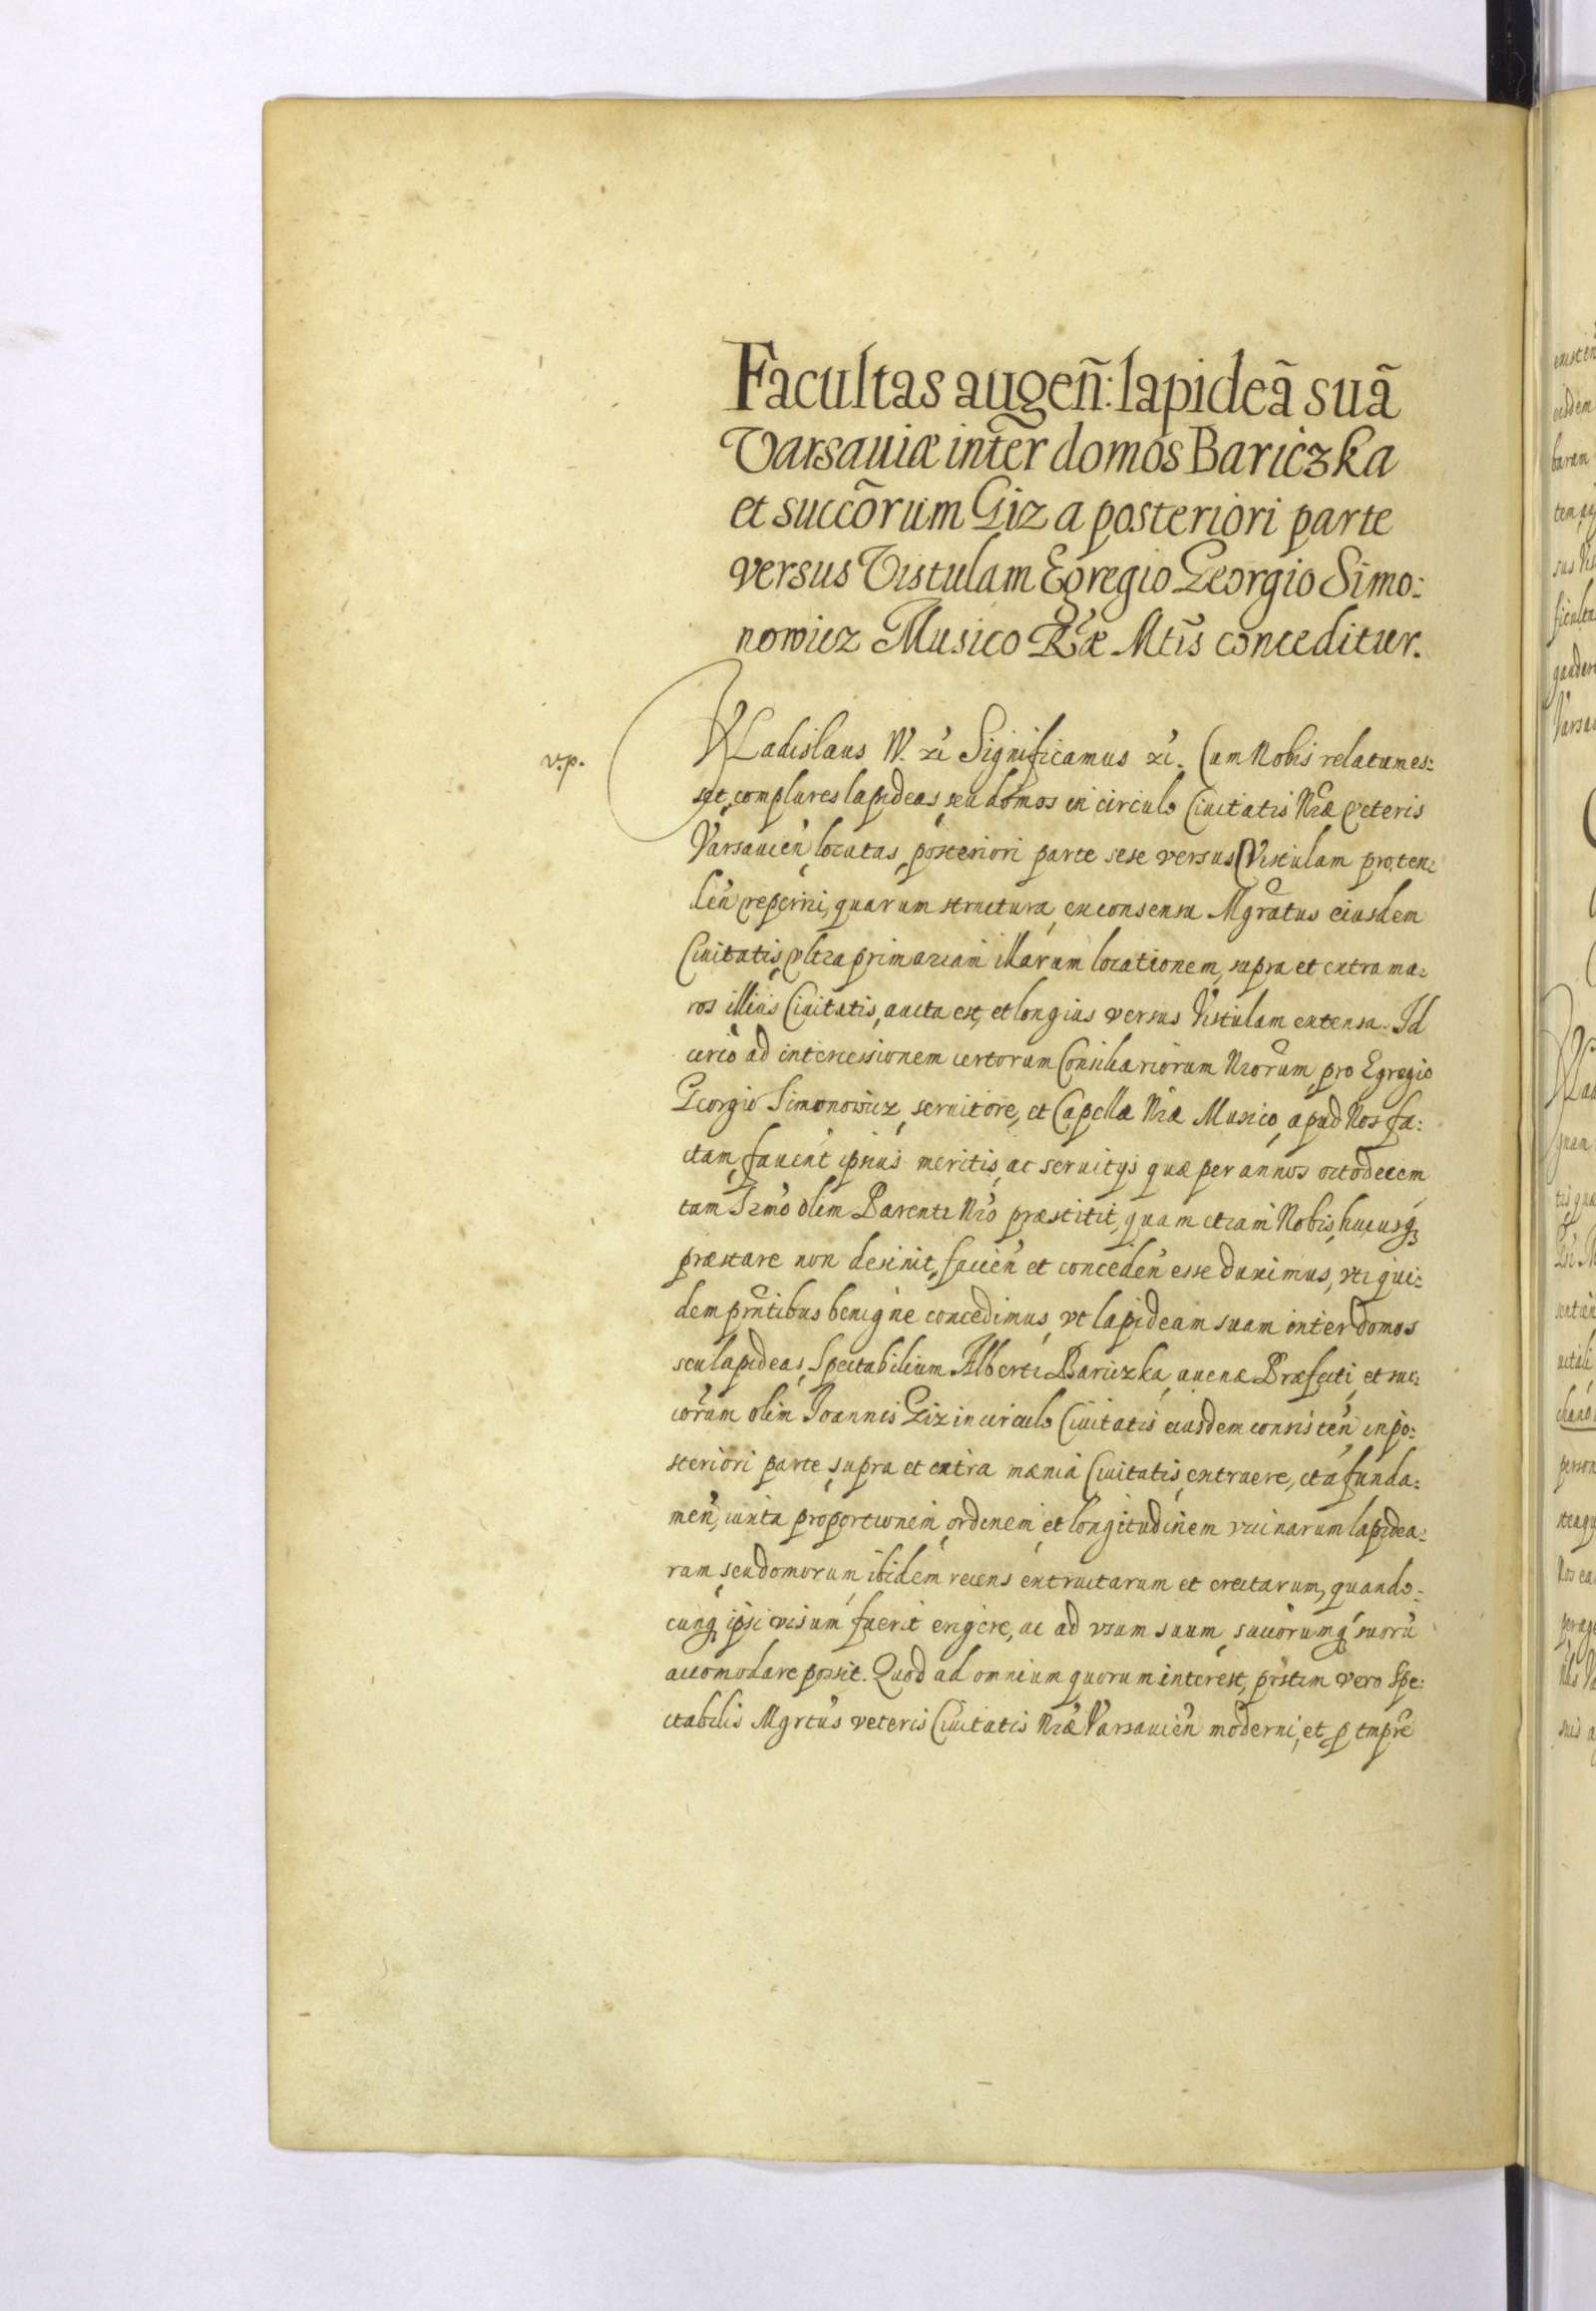 Facultas augen̄: lapideā suā
Varsauiæ inter domos Bariczka
et succōrum Giz a posteriori parte
versus Vistulam Egregio Georgio Simo:
nowicz Musico Ræ Mtis conceditur.
v.p.
WLadislaus IV. Significamus Cum Nobis relatum es:
set, complures lapideas, seu domos in circulo Ciuitatis Nræ Veteris
Varsauien̄ locatas, posteriori parte sese versus Vistulam proten:
den̄ reperiri, quarum structura, ex consensu Mgratus eiusdem
Ciuitatis, vltra primariam illarum locationem, supra et extra mu:
ros illius Ciuitatis, aucta est, et longius versus Vistulam extensa. Id
circo ad intercessionem certorum Consiliariorum Nrorum, pro Egregio
Georgio Simonowicz, seruitore, et Capellæ Nræ Musico, apud Nos fa:
ctam, fauent ipsius meritis, ac seruitys quæ per annos octodecem
tam Srmo olim Parenti Nro præstitit, quam etiam Nobis, hucusq
præstare non desinit, facien̄ et conceden̄ esse duximus, vti qui:
dem prntibus benigne concedimus, vt lapideam suam inter domos
seu lapideas, Spectabilium Alberti Bariczka, auenæ Præfecti, et suc:
corum olim Joannis Giz in circulo Ciuitatis eiusdem consisten̄, in po:
steriori parte, supra et extra mænia Ciuitatis, extruere, et a funda:
men̄, iuxta proportionem, ordinem, et longitudinem vicinarum lapidea:
rum, seu domorum, ibidem recens extructarum et erectarum, quando:
cunq ipsi visum fuerit erigere, ac ad vsum suum, succorumq suorū
accomodare possit. Quod ad omnium quorum interest, prstim vero Spe:
ctabilis Mgrtus veteris Ciuitatis Nræ Varsauien̄ moderni, et p tmpre